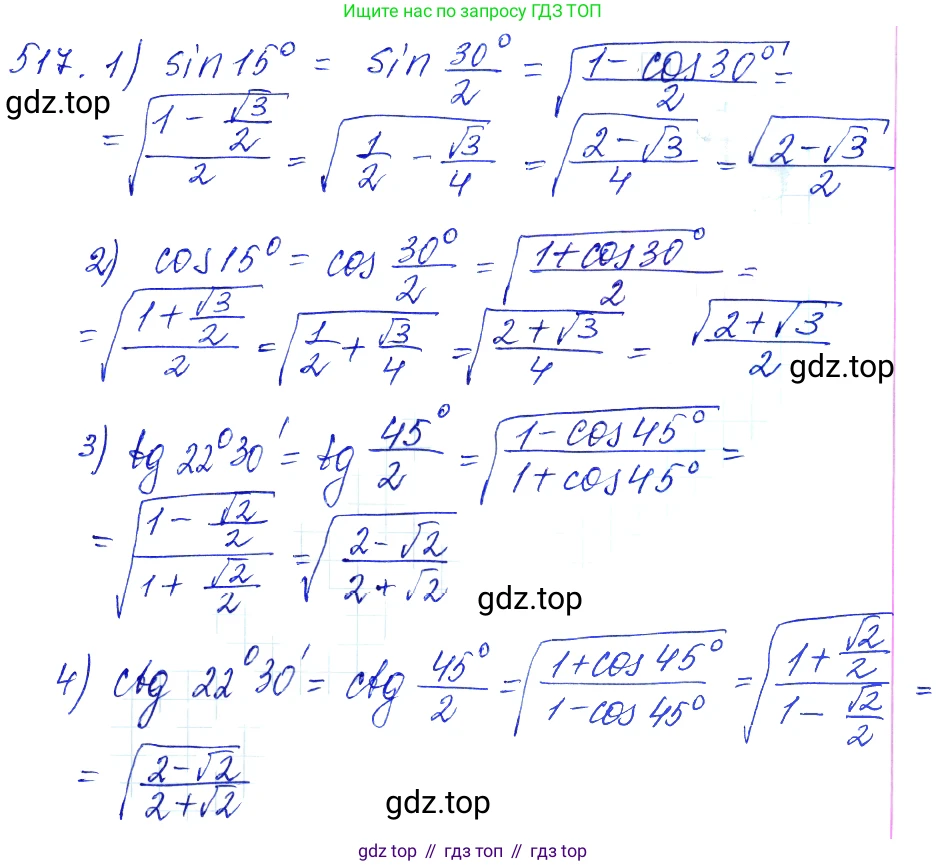 Ищите нас по запросу ГДЗ ТОП
517. 1) sin 15° = sin 30°/2 = √((1 - cos 30°)/2) =
gdz.top
= √((1 - √3/2)/2) = √(1/2 - √3/4) = √((2 - √3)/4) = √(2 - √3)/2
2) cos 15° = cos 30°/2 = √((1 + cos 30°)/2) =
= √((1 + √3/2)/2) = √(1/2 + √3/4) = √((2 + √3)/4) = √(2 + √3)/2
gdz.top
3) tg 22°30' = tg 45°/2 = √((1 - cos 45°)/(1 + cos 45°)) =
= √((1 - √2/2)/(1 + √2/2)) = √((2 - √2)/(2 + √2))
gdz.top
4) ctg 22°30' = ctg 45°/2 = √((1 + cos 45°)/(1 - cos 45°)) = √((1 + √2/2)/(1 - √2/2)) =
= √((2 - √2)/(2 + √2))
gdz.top
gdz top // гдз топ // гдз top